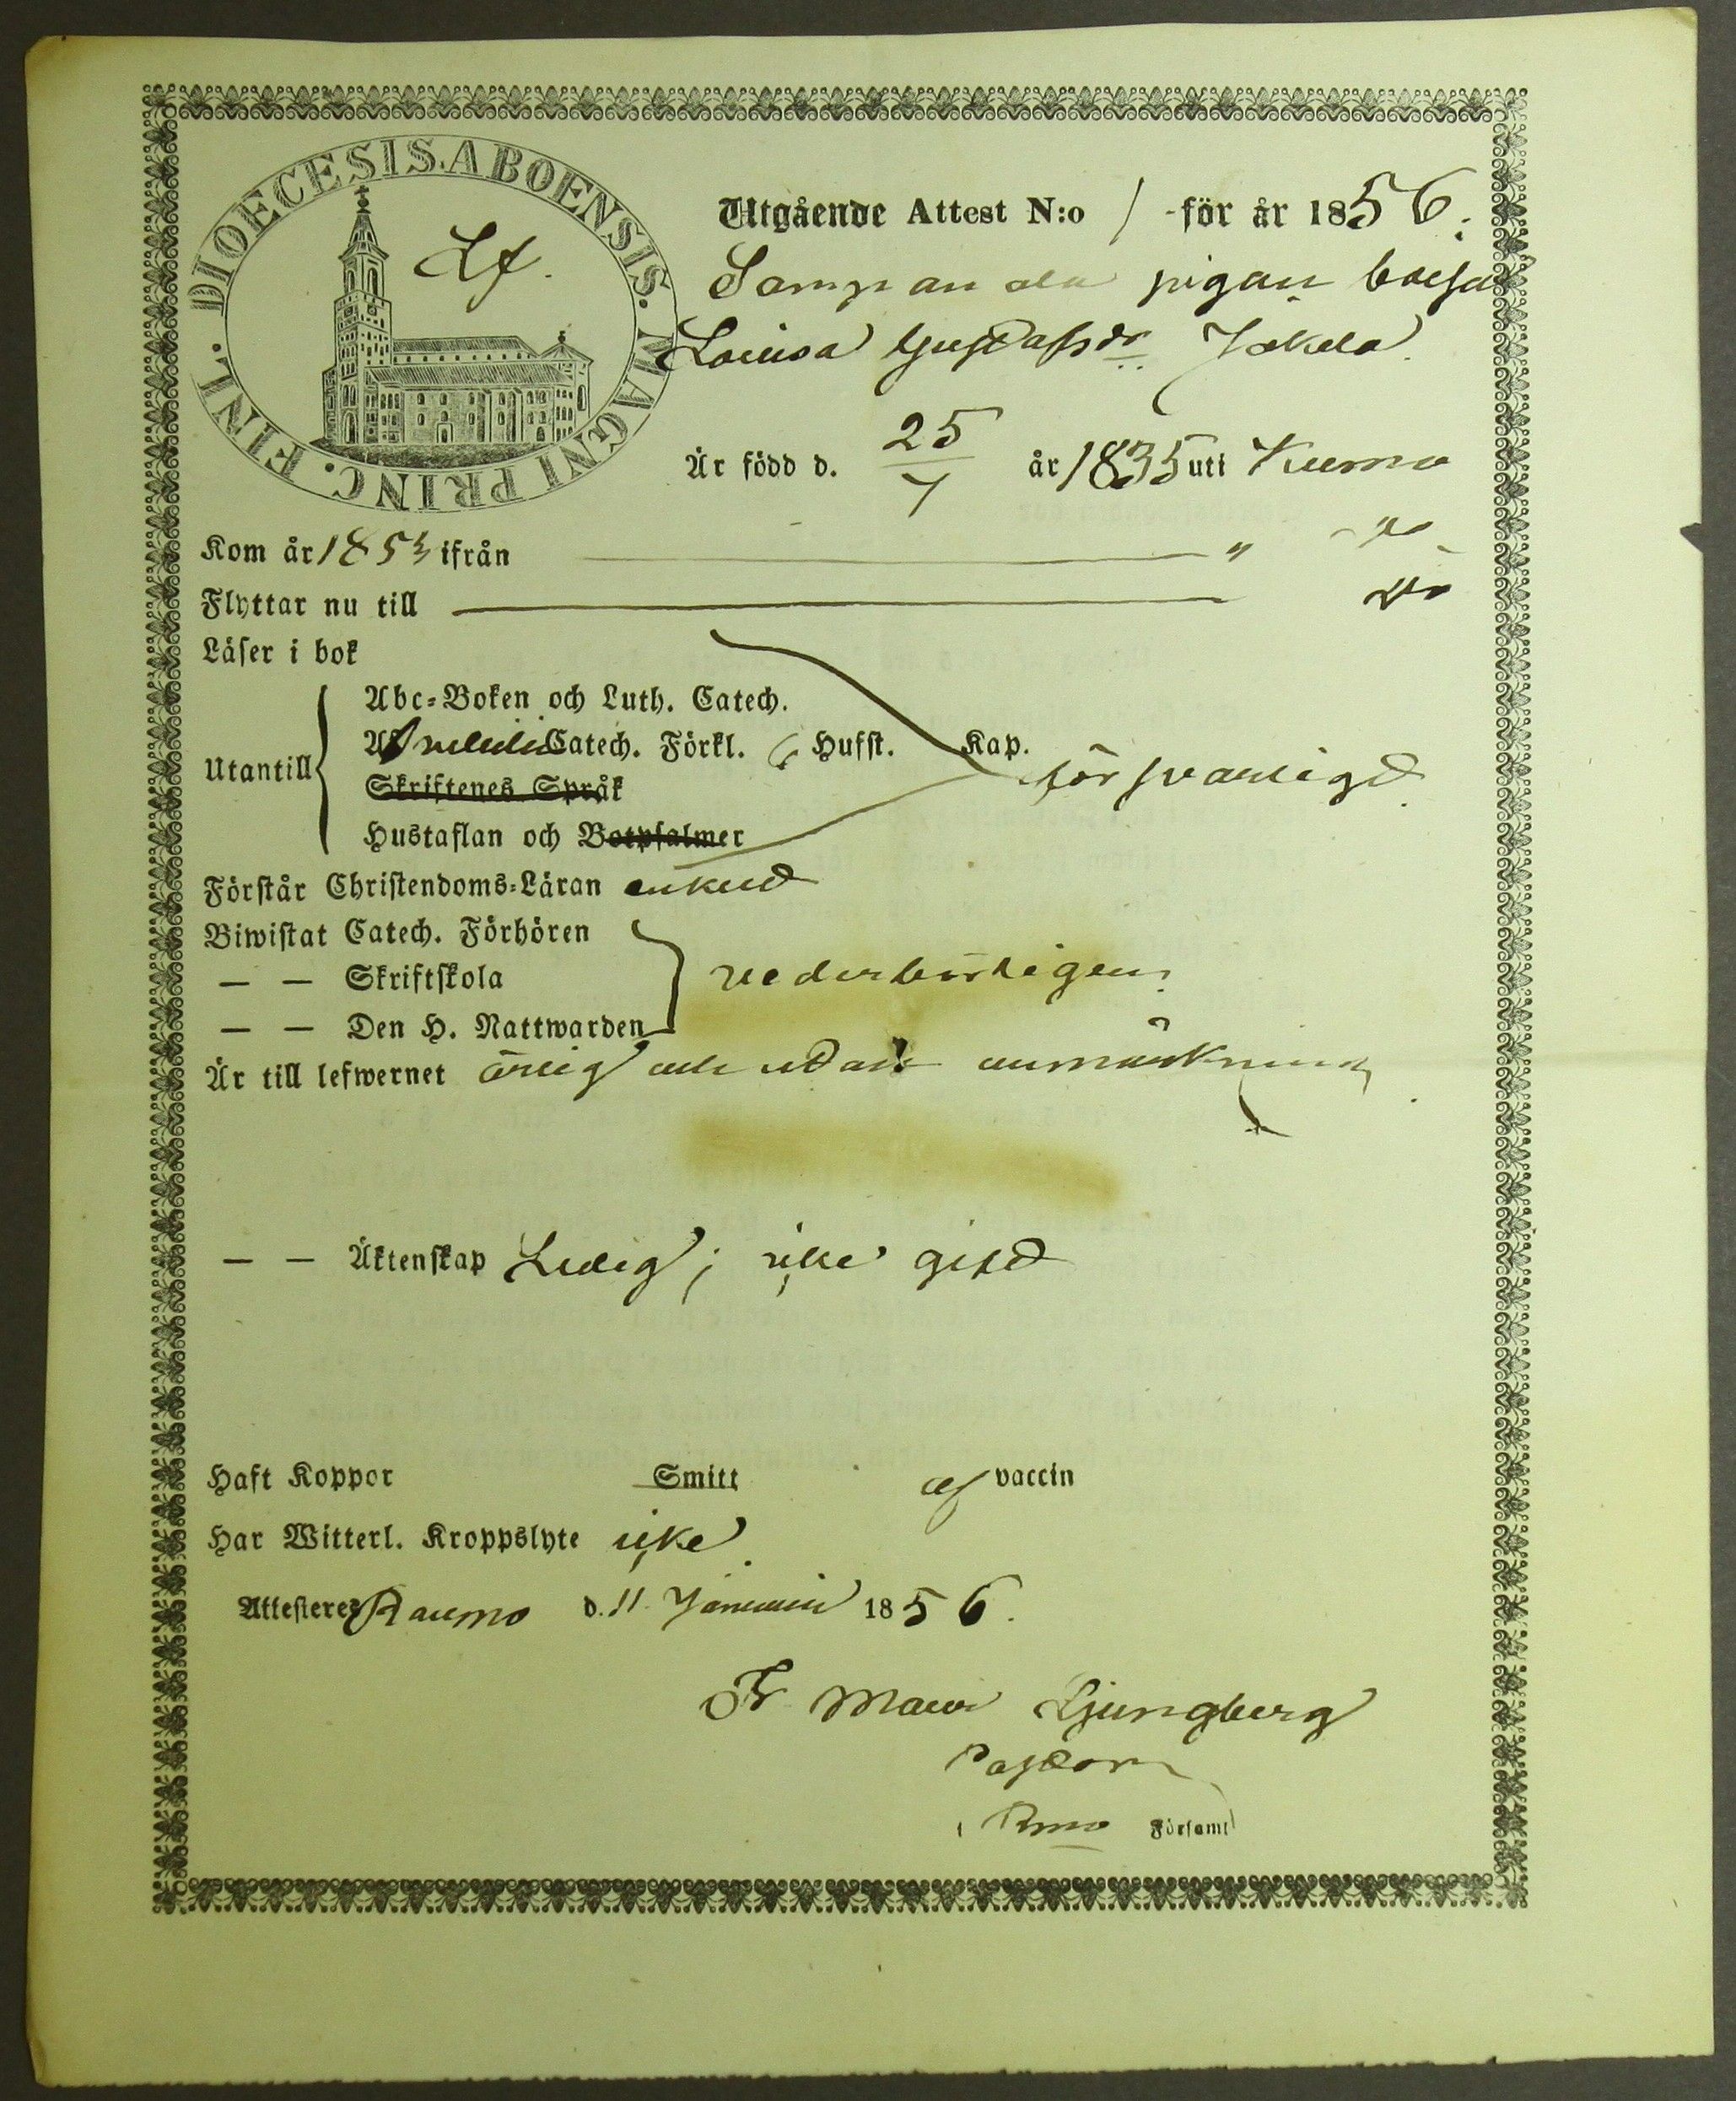 DIOECESIS. ABOENSIS. MAGNI PRINC. FINL.
Lf.
Utgående Attest N:o 1 för år 1856.
pigan
Lovisa Gustafsdr Jokela
Är född d. 25/7 år 1835 uti Kumo
Kom år 1853 ifrån " do
Flyttar nu till do
Läser i bok
Utantill
Abc-Boken och Luth. Catech.
Svebilii Catech. Förkl. Husst. Kap. försvarligt
Skriftenes Språk
Hustaflan och Botpsalmer
Förstår Christendoms-Läran enkelt
Biwistat Catech. Förhören
— — Skriftskola vederbörligen
— — Den H. Nattwarden
Är till lefwernet ärlig och utan anmärkning
— — Äktenskap Ledig; icke gift
Haft Koppor Smitt af vaccin
Har Witterl. Kroppslyte icke
Attesteres Raumo d. 11 Januari 1856.
Fr Maur Ljungberg
Pastor
i Rmo Församl